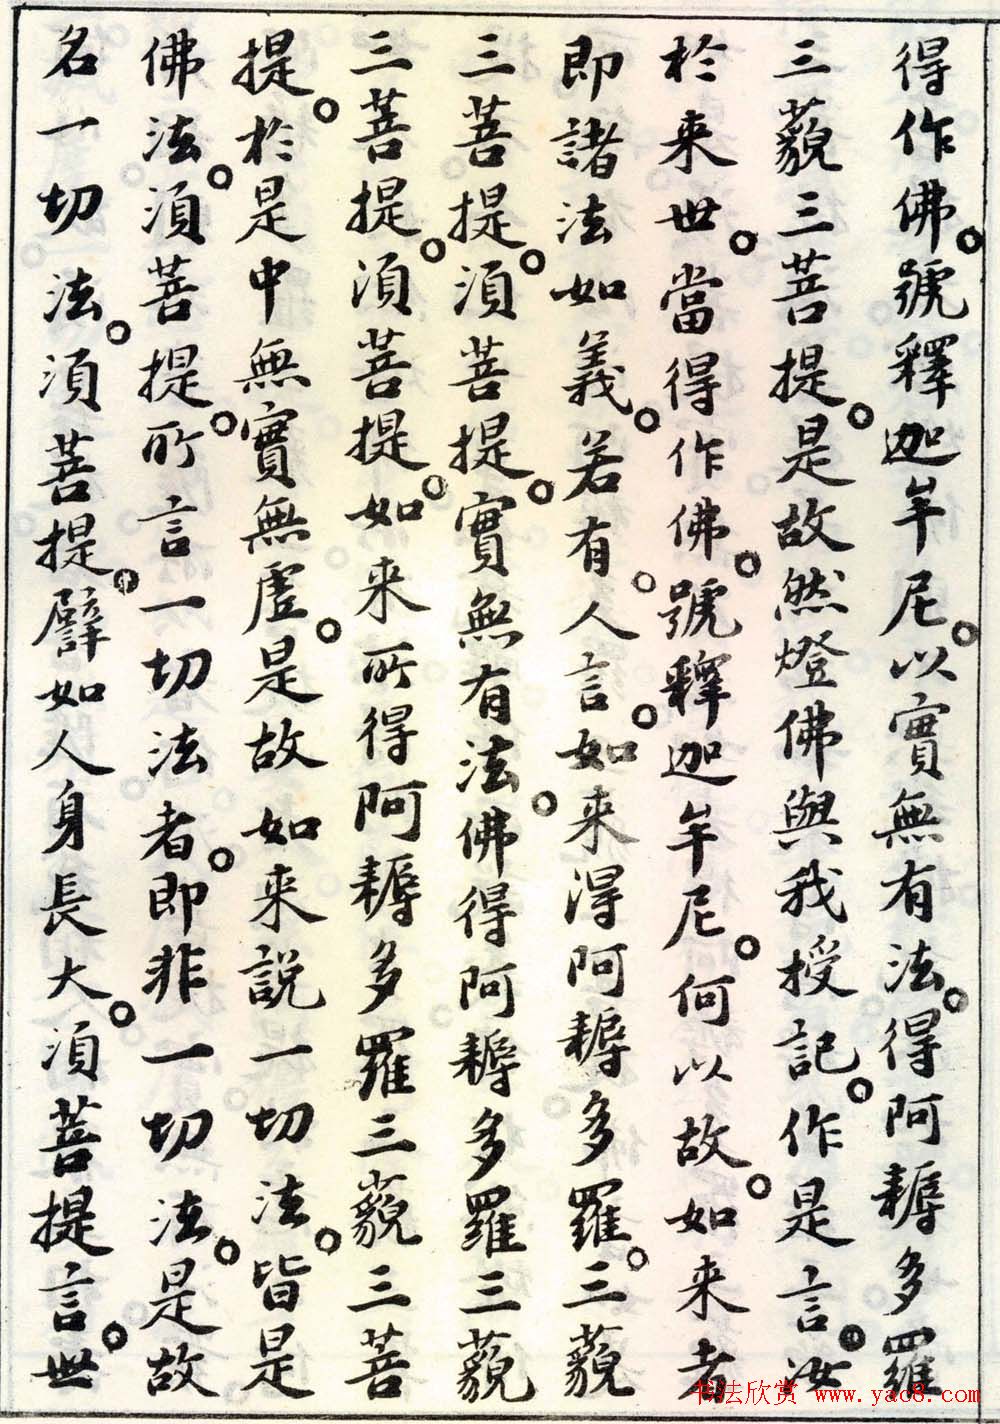 得作佛。號釋迦牟尼。以實無有法。得阿耨多羅
三藐三菩提。是故然燈佛與我授記。作是言。汝
於来世。當得作佛。號釋迦牟尼。何以故。如来者
即諸法如義。若有。人言。如来得阿耨多羅。三藐
三菩提。須菩提。實無有法。佛得阿耨多羅三藐
三菩提。須菩提。如来所得阿耨多羅三藐三菩
提。於是中無實無虛。是故如来説一切法。皆是
佛法。須菩提。所言一切法者。即非一切法。是故
名一切法。須菩提。譬如人身長大。須菩提言。世
书法欣赏 www.yac8.com